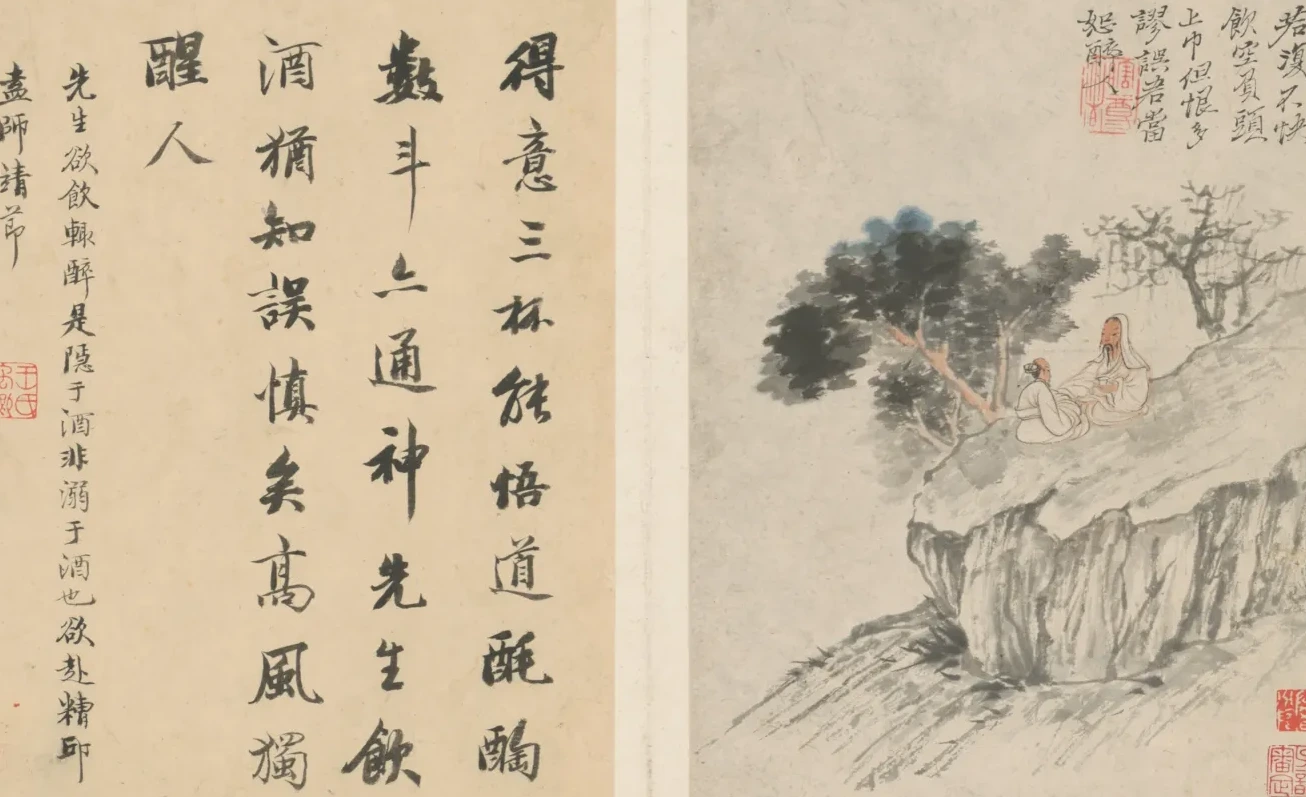 若復不快
飲空負頭
上巾但恨多
謬誤君當
恕醉人
得意三杯能悟道酕醄
數斗亦通神先生飲
酒猶知誤慎矣高風獨
醒人
先生欲飲輒醉是隱于酒非溺于酒也欲赴糟邱
盍師靖節